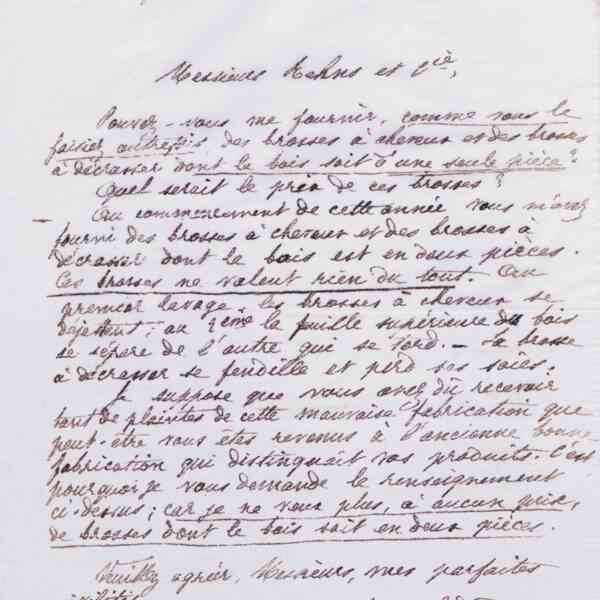 Messieurs Rehns et Cie,
Pouvez-vous me fournir, comme vous le
faisiez autrefois, des brosses à cheveux et des brosses
à décrasser dont le bois soit d'une seule pièce?
Quel serait le prix de ces brosses?
Au commencement de cette année vous m'avez
fourni des brosses à cheveux et des brosses à
décrasser dont le bois est en deux pièces.
Ces brosses ne valent rien du tout. Au
premier lavage les brosses à cheveux se
déjettent; au 2ème la feuille supérieure du bois
se sépare de l'autre qui se tord. – La brosse
à décrasser se fendille et perd ses soies.
Je suppose que vous avez dû recevoir
tant de plaintes de cette mauvaise fabrication que
peut-être vous êtes revenus à l'ancienne bonne
fabrication qui distinguait vos produits. C'est
pourquoi je vous demande le renseignement
ci-dessus; car je ne veux plus, à aucun prix,
de brosses dont le bois soit en deux pièces.
Veuillez agréer, Messieurs, mes parfaites